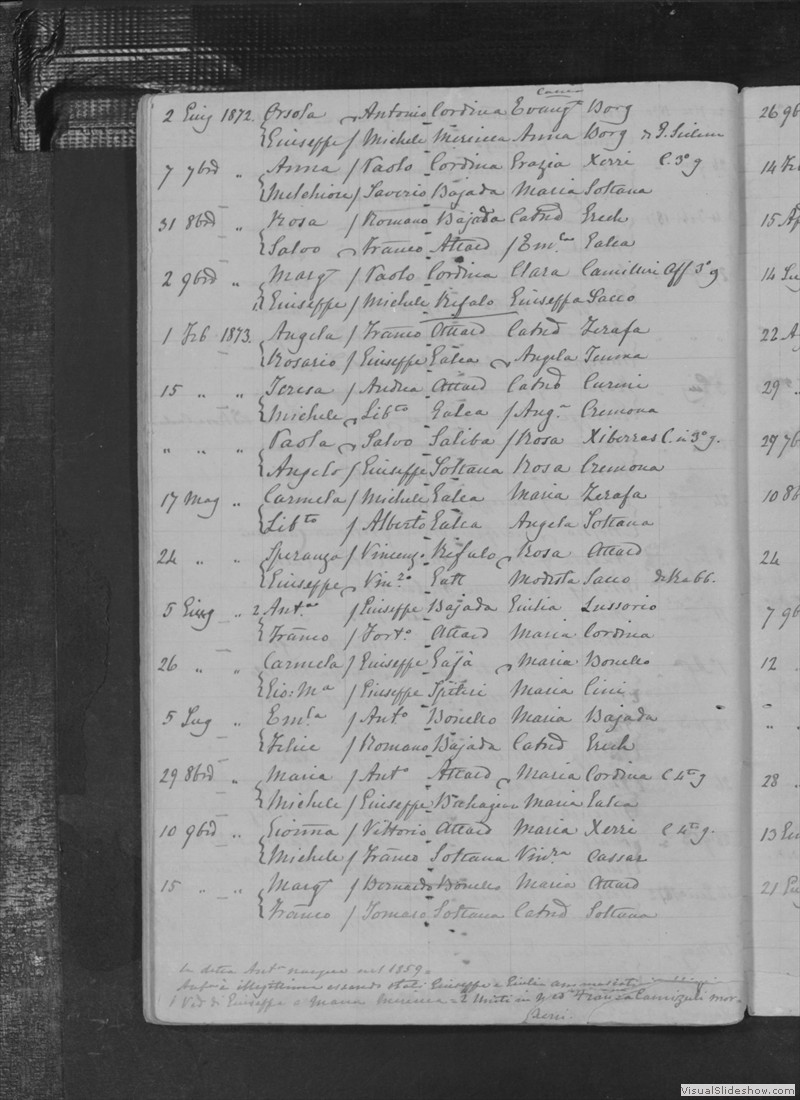 Cauca
2 Giug 1872. Orsola Antonio Cordina Evang^a Borg
Giuseppe / Michele Mercieca Anna Borg
7 7brd " Anna / Paolo Cordina Grazia Xerri C. 3° g
Melchiore / Saverio Bajada Maria Soltana
31 8brd " Rosa / Romano Bajada Catnd Grech
Salvo Franco Attard / Em^la Galea
2 9brd " Marg^ta / Paolo Cordina Clara Camilleri Aff 3° g
Giuseppe / Michele Rifalo Giuseppa Sacco
1 Feb 1873. Angela / Franco Attard Catnd Zerafa
Rosario / Giuseppe Galea Angela
15 " " Teresa / Andrea Attard Catnd Curmi
Michele Lib^to Galea / Ang^a Cremona
" " " Paola Salvo Saliba / Rosa Xiberras C. in 3° g.
Angelo / Giuseppe Soltana Rosa Cremona
17 Mag " Carmela / Michele Galea Maria Zerafa
Lib^to / Alberto Galea Angela Soltana
24 " " Speranza / Vincenzo Rifalo Rosa Attard
Giuseppe Vin^zo Gatt Modesta Sacco
5 Giug " 2 Ant^na / Giuseppe Bajada Giulia Lussorio
Franco / Fort^o Attard Maria Cordina
26 " " Carmela / Giuseppe Gajà Maria Bonello
Gio: M^a / Giuseppe Spiteri Maria Cini
5 Lug " Em^la / Ant^o Bonello Maria Bajada
Felice / Romano Bajada Catnd Grech
29 8brd " Maria / Ant^o Attard Maria Cordina C 4^to g
Michele / Giuseppe Buhagiar Maria Galea
10 9brd " Gionna / Vittorio Attard Maria Xerri C 4^to g.
Michele / Franco Soltana Vin^za Cassar
15 " " Marg^ta / Bernardo Bonello Maria Attard
Franco / Tomaso Soltana Catnd Soltana
la detta Ant^na nacque nel 1859.
Ant^na è illegittima essendo stati Giuseppe e Giulia
1 Ved di Giuseppe e Maria Mercieca = 2
26 9b
14 Fe
15 Ap
14 Lug
22 A
29 "
29 7b
10 8b
24
7 9b
12
" "
28
13
21
VisualSlideshow.com